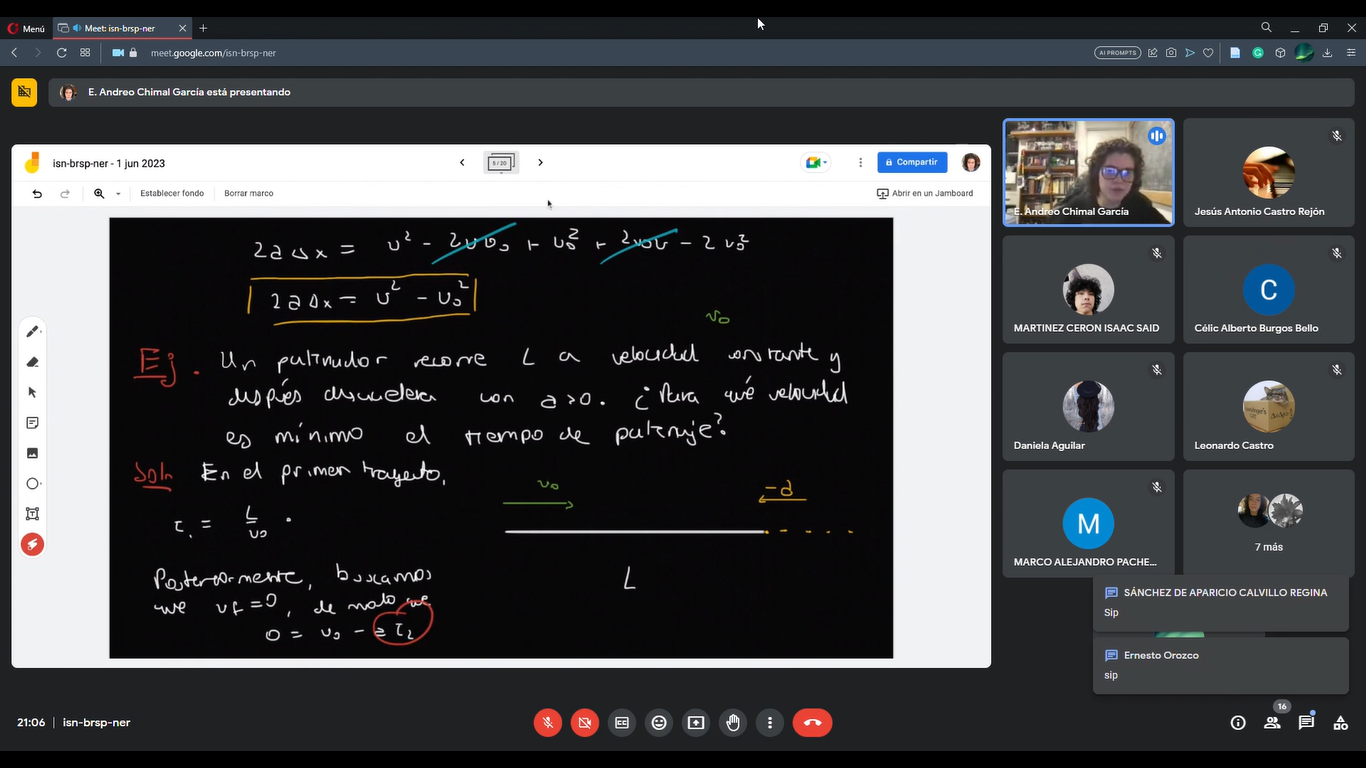 Menú
Meet: isn-brsp-ner
meet.google.com/isn-brsp-ner
AI PROMPTS
E. Andreo Chimal García está presentando
isn-brsp-ner - 1 jun 2023
5 / 20
Compartir
Establecer fondo
Borrar marco
Abrir en un Jamboard
2a Δx = v² - 2vv₀ + v₀² + 2v₀v - 2v₀²
2a Δx = v² - v₀²
v₀
Ej. Un patinador recorre L a velocidad constante y
después desacelera con a>0. ¿Para qué velocidad
es mínimo el tiempo de patinaje?
Soln En el primer trayecto,
v₀
-a
τ₁ = L/v₀.
L
Posteriormente, buscamos
que vf=0, de modo que
0 = v₀ - aτ₂
E. Andreo Chimal García
Jesús Antonio Castro Rejón
MARTINEZ CERON ISAAC SAID
C
Célic Alberto Burgos Bello
Daniela Aguilar
Leonardo Castro
M
MARCO ALEJANDRO PACHE...
7 más
SÁNCHEZ DE APARICIO CALVILLO REGINA
Sip
Ernesto Orozco
sip
21:06 | isn-brsp-ner
16